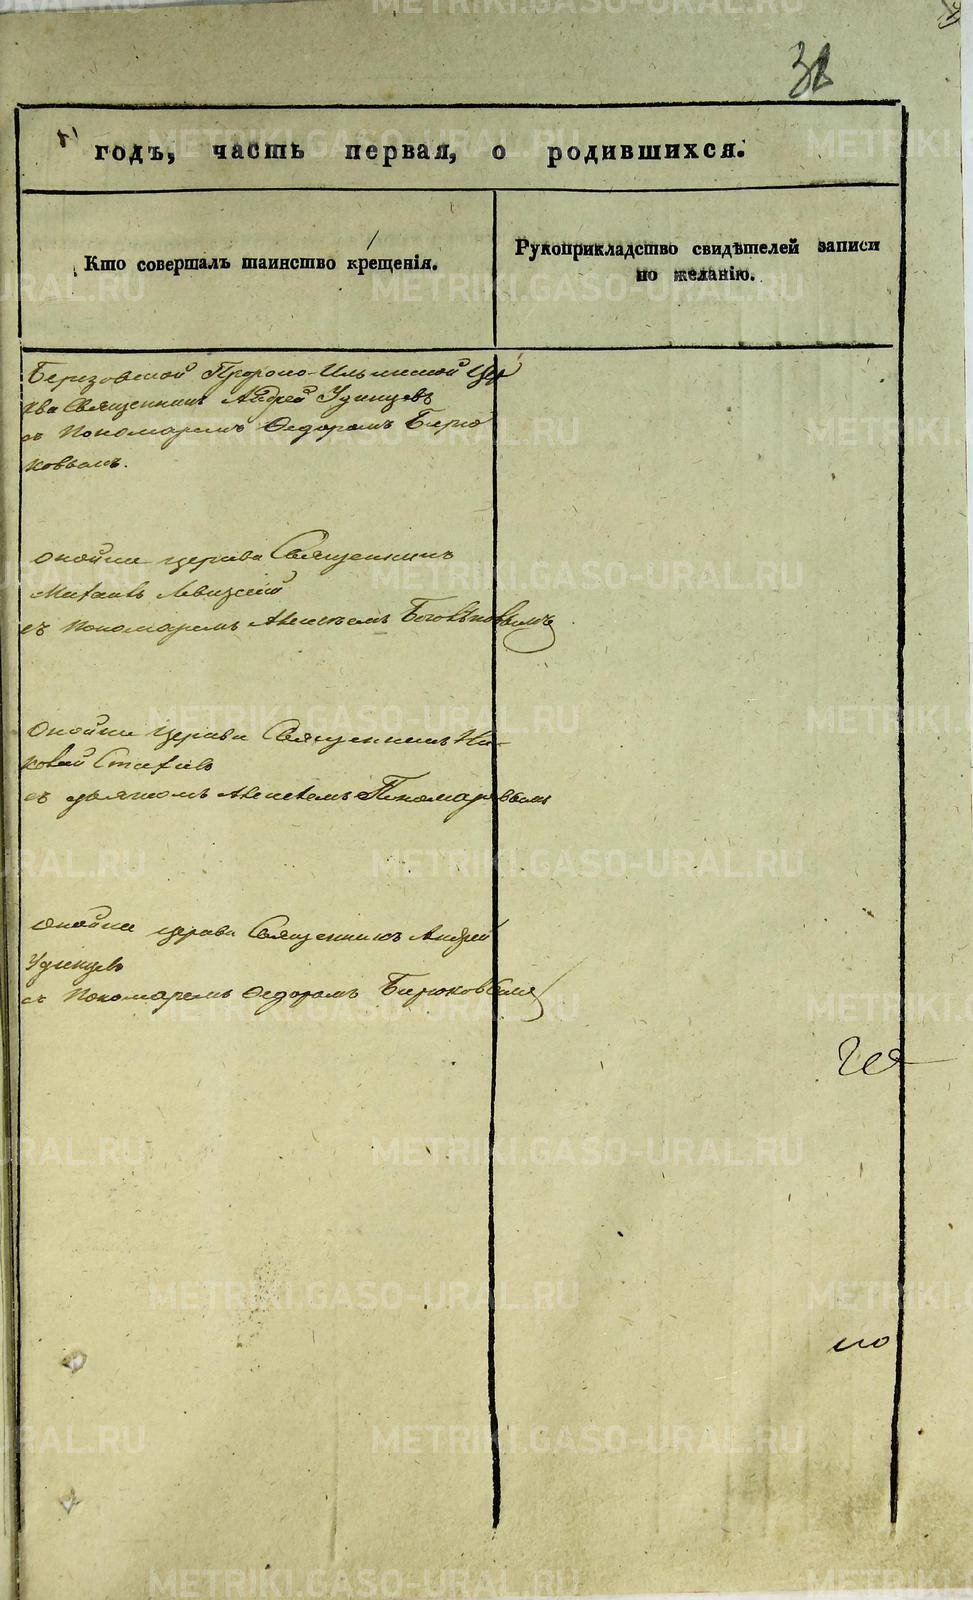 31
годъ, часть первая, о родившихся.
Кто совершалъ таинство крещенія.
Рукоприкладство свидѣтелей записи
по желанію.
Березовской Пророко-Ильинской Цер
кви Священникъ Андрей Удинцевъ
съ Пономаремъ Ѳедоромъ Бирю
ковымъ.
оной же церкви Священникъ
Михаилъ Левицкій
съ Пономаремъ Алексѣемъ
Оной же церкви Священникъ Ни
колай
съ дьячкомъ Алексѣемъ Пономаревымъ
Оной же церкви Священникъ Андрей
Удинцевъ
съ Пономаремъ Ѳедоромъ Бирюковымъ
METRIKI.GASO-URAL.RU